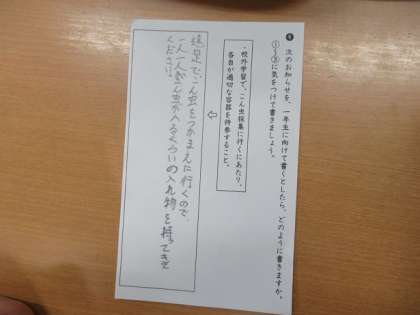 ④ 次のお知らせを、一年生に向けて書くとしたら、どのように書きますか。
①〜③に気をつけて書きましょう。
・校外学習で、こん虫採集に行くにあたり、
各自が適切な容器を持参すること。
⇦
遠足で、こん虫をつかまえに行くので、
一人一人がこん虫が入るくらいの入れ物を持ってきて
ください。